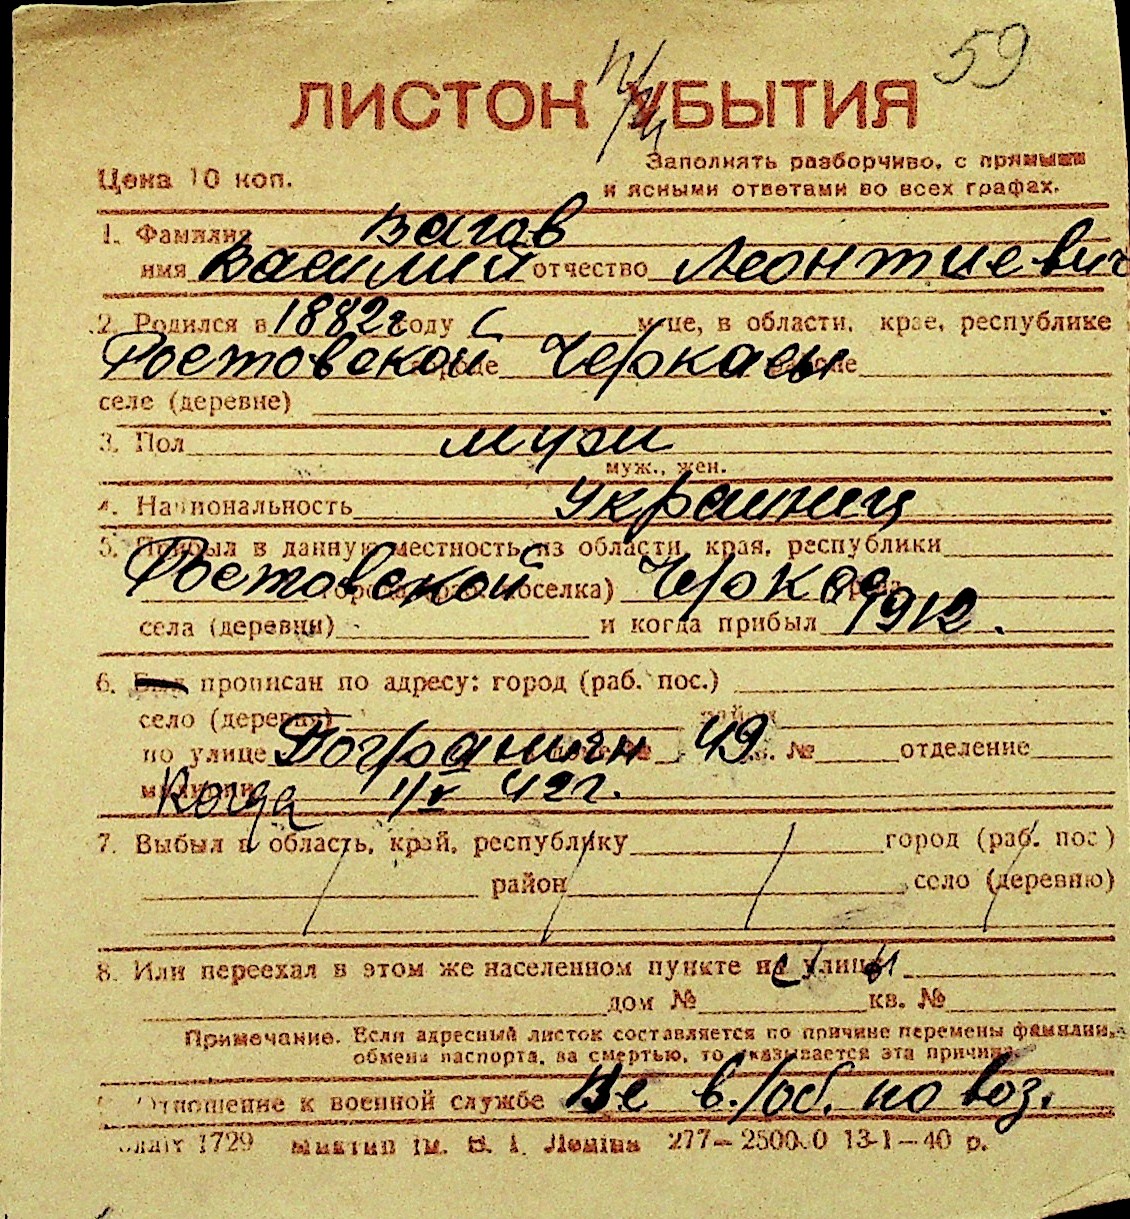 59
ЛИСТОК УБЫТИЯ
Цена 10 коп.
Заполнять разборчиво, с прямыми
и ясными ответами во всех графах.
1. Фамилия Вагав
имя Василий отчество Леонтиевич
2. Родился в 1882 г году м-це, в области, крае, республике
Ростовской городе Черкасы районе
селе (деревне)
3. Пол муж
муж., жен.
4. Национальность Украинец
5. Прибыл в данную местность из области, края, республики
Ростовской города (раб. поселка) Черкас
села (деревни) и когда прибыл 1912.
6. Был прописан по адресу: город (раб. пос.)
село (деревня) район
по улице Пограничн 49 кв. № отделение
милиции Когда 1/V 42 г.
7. Выбыл в область, край, республику город (раб. пос.)
район село (деревню)
8. Или переехал в этом же населенном пункте на улицу
дом № кв. №
Примечание. Если адресный листок составляется по причине перемены фамилии,
обмена паспорта, за смертью, то указывается эта причина.
Отношение к военной службе Не в./об. по воз.
1729 ім. В. І. Леніна 277–25000 13-1–40 р.